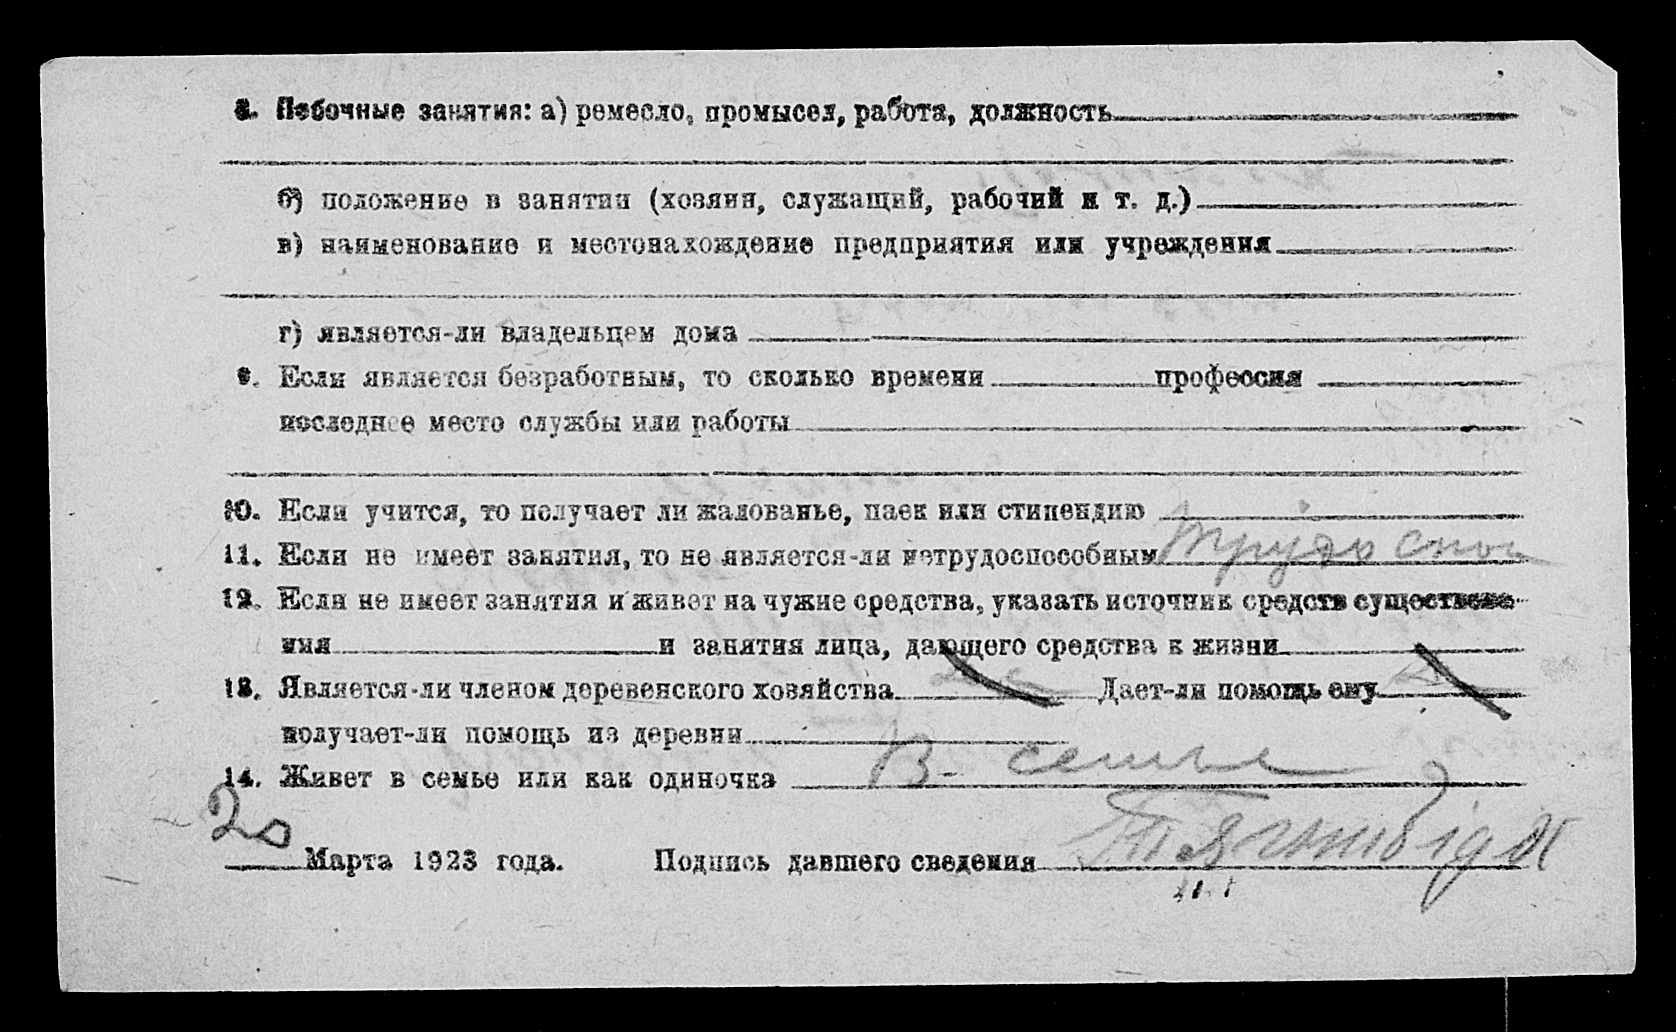 8. Побочные занятия: а) ремесло, промысел, работа, должность
б) положение в занятии (хозяин, служащий, рабочий и т. д.)
в) наименование и местонахождение предприятия или учреждения
г) является-ли владельцем дома
9. Если является безработным, то сколько времени профессия
последнее место службы или работы
10. Если учится, то получает ли жалованье, паек или стипендию
11. Если не имеет занятия, то не является-ли нетрудоспособным трудоспос
12. Если не имеет занятия и живет на чужие средства, указать источник средств существова-
ния и занятия лица, дающего средства к жизни
13. Является-ли членом деревенского хозяйства Дает-ли помощь ему
получает-ли помощь из деревни
14. Живет в семье или как одиночка В семье
20 Марта 1923 года. Подпись давшего сведения